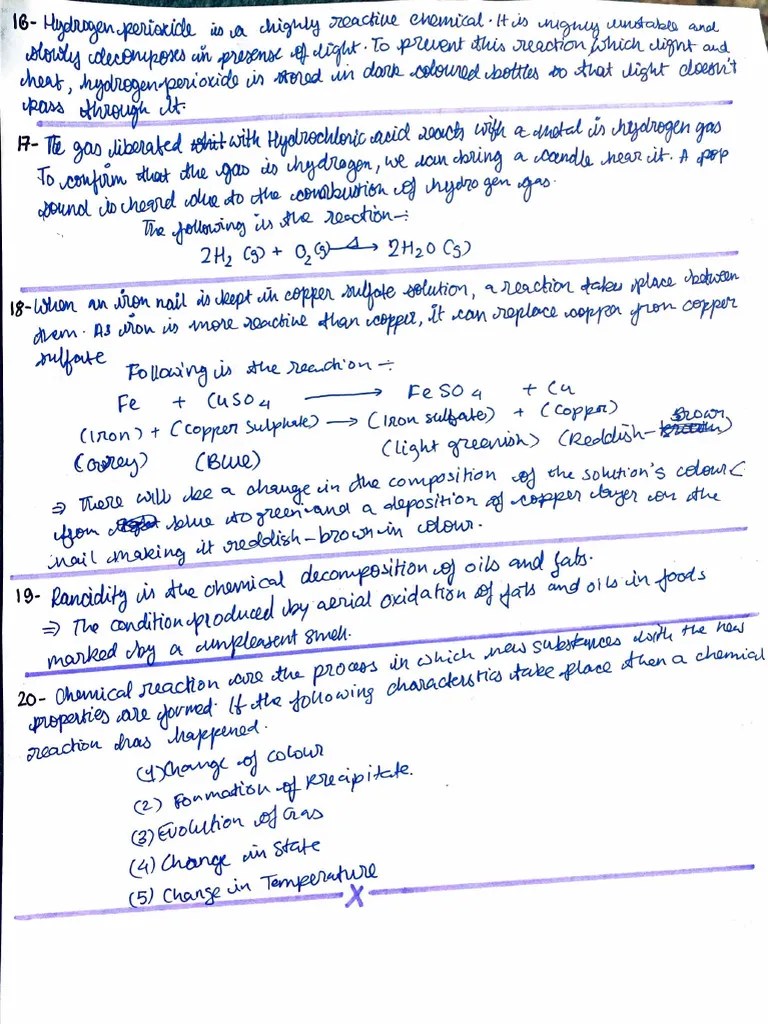 16- Hydrogen perioxide is a highly reactive chemical. It is highly unstable and
slowly decomposes in presense of light. To prevent this reaction, which light and
heat, hydrogen perioxide is stored in dark coloured bottles so that light doesn't
pass through it.
17- The gas liberated with Hydrochloric acid reacts with a metal is hydrogen gas
To confirm that the gas is hydrogen, we can bring a candle near it. A pop
sound is heard due to the combustion of hydrogen gas.
The following is the reaction:-
2H₂ (g) + O₂(g) —Δ→ 2H₂O (g)
18- When an iron nail is kept in copper sulfate solution, a reaction takes place between
them. As iron is more reactive than copper, it can replace copper from copper
sulfate
Following is the reaction :-
Fe + CuSO₄ ⟶ FeSO₄ + Cu
(Iron) + (Copper sulphate) → (Iron sulfate) + (Copper)
(Grey) (Blue) (light greenish) (Reddish-Brown)
⇒ There will be a change in the composition of the solution's colour
from blue to green and a deposition of copper layer on the
nail making it reddish-brown in colour.
19- Rancidity is the chemical decomposition of oils and fats.
⇒ The condition produced by aerial oxidation of fats and oils in foods
marked by a unpleasent smell.
20- Chemical reaction are the process in which new substances with the new
properties are formed. If the following characterstics take place then a chemical
reaction has happened.
(1) Change of colour
(2) Formation of Precipitate.
(3) Evolution of Gas
(4) Change in State
(5) Change in Temperature
X